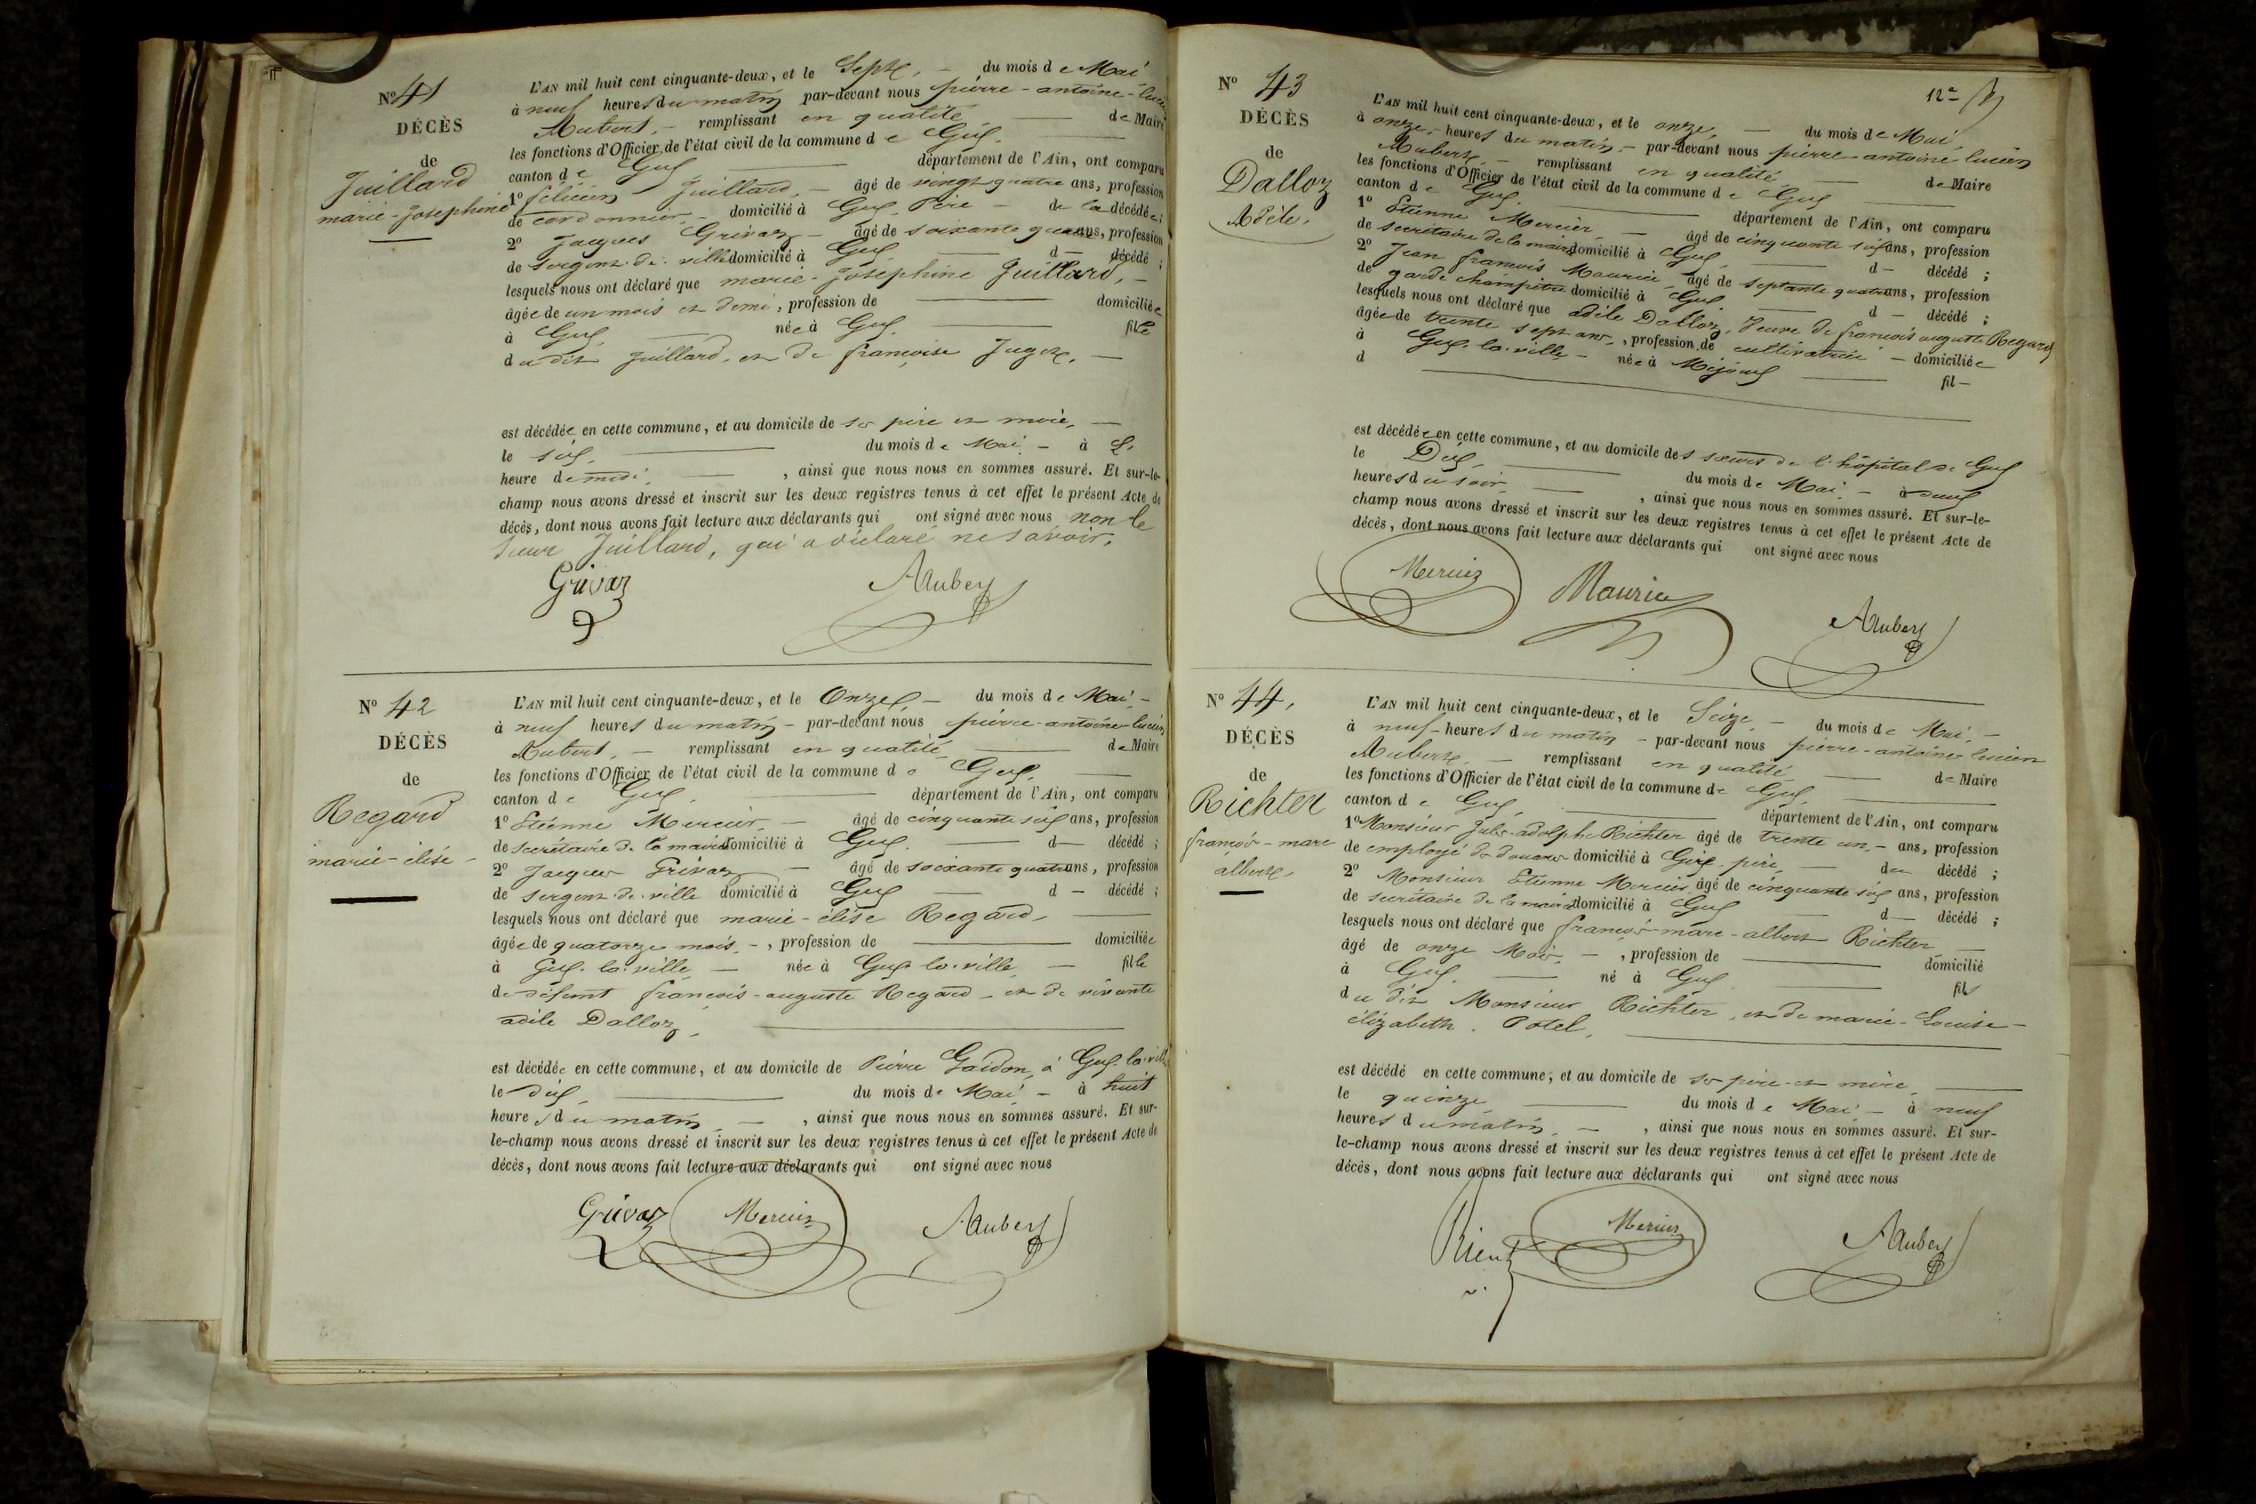 N° 41
DÉCÈS
de
Juillard
marie-Josephine
L'AN mil huit cent cinquante-deux, et le Sept, — du mois de Mai
à neuf heures du matin par-devant nous pierre-antoine-lucien
Aubert, — remplissant en qualité — de Maire
les fonctions d'Officier de l'état civil de la commune de Gex,
canton de Gex — département de l'Ain, ont comparu
1° félicien Juillard, — âgé de vingt quatre ans, profession
de cordonnier, — domicilié à Gex, Père — de la décédée;
2° Jacques Grivaz — âgé de soixante quatre ans, profession
de sergent de ville domicilié à Gex — d— décédé ;
lesquels nous ont déclaré que marie-Joséphine Juillard, —
âgée de un mois et demi, profession de — domiciliée
à Gex, — née à Gex, — fille
du dit Juillard, et de françoise —
est décédée en cette commune, et au domicile de ses père et mère, —
le six, — du mois de Mai — à
heure de midi, — , ainsi que nous nous en sommes assuré. Et sur-le-
champ nous avons dressé et inscrit sur les deux registres tenus à cet effet le présent Acte de
décès, dont nous avons fait lecture aux déclarants qui ont signé avec nous non le
sieur Juillard, qui a déclaré ne savoir.
Grivaz Aubert
N° 42
DÉCÈS
de
Regard
marie-élise
L'AN mil huit cent cinquante-deux, et le Onze, — du mois de Mai, —
à neuf heures du matin — par-devant nous pierre-antoine-lucien
Aubert, — remplissant en qualité — de Maire
les fonctions d'Officier de l'état civil de la commune de Gex, —
canton de Gex, — département de l'Ain, ont comparu
1° Etienne Mercier, — âgé de cinquante six ans, profession
de secrétaire de la mairie domicilié à Gex, — d— décédé ;
2° Jacques Grivaz — âgé de soixante quatre ans, profession
de sergent de ville domicilié à Gex — d — décédé ;
lesquels nous ont déclaré que marie-élise Regard, —
âgée de quatorze mois, — , profession de — domiciliée
à Gex-la-ville, — née à Gex-la-ville, — fille
de défunt françois-auguste Regard — et de vivante
adèle Dalloz, —
est décédée en cette commune, et au domicile de Pierre Gaidon, à Gex-la-ville
le dix, — du mois de Mai — à huit
heures du matin, — , ainsi que nous nous en sommes assuré. Et sur-
le-champ nous avons dressé et inscrit sur les deux registres tenus à cet effet le présent Acte de
décès, dont nous avons fait lecture aux déclarants qui ont signé avec nous
Grivaz Mercier Aubert
12e
N° 43
DÉCÈS
de
Dalloz
Adèle,
L'AN mil huit cent cinquante-deux, et le onze, — du mois de Mai,
à onze, — heures du matin, — par-devant nous pierre-antoine lucien
Aubert, — remplissant en qualité — de Maire
les fonctions d'Officier de l'état civil de la commune de Gex —
canton de Gex, — département de l'Ain, ont comparu
1° Etienne Mercier, — âgé de cinquante six ans, profession
de secrétaire de la mairie domicilié à Gex, — d— décédé ;
2° Jean françois Maurice, âgé de septante quatre ans, profession
de garde champêtre domicilié à Gex — d — décédé ;
lesquels nous ont déclaré que adèle Dalloz, Veuve de françois auguste Regard
âgée de trente sept ans, , profession de cultivatrice — domiciliée
à Gex-la-ville — née à Mijoux — fil—
d —
est décédée en cette commune, et au domicile des sœurs de l'hôpital de Gex
le Dix, — du mois de Mai, — à deux
heures du soir, — , ainsi que nous nous en sommes assuré. Et sur-le-
champ nous avons dressé et inscrit sur les deux registres tenus à cet effet le présent Acte de
décès, dont nous avons fait lecture aux déclarants qui ont signé avec nous
Mercier Maurice Aubert
N° 44,
DÉCÈS
de
Richter
françois-marc
albert,
L'AN mil huit cent cinquante-deux, et le Seize — du mois de Mai, —
à neuf — heures du matin — par-devant nous pierre-antoine lucien
Aubert, — remplissant en qualité — de Maire
les fonctions d'Officier de l'état civil de la commune de Gex —
canton de Gex, — département de l'Ain, ont comparu
1° Monsieur Jules-adolphe Richter âgé de trente un, — ans, profession
de employé des douanes domicilié à Gex, père, — du décédé ;
2° Monsieur Etienne Mercier, âgé de cinquante six ans, profession
de secrétaire de la mairie domicilié à Gex — d— décédé ;
lesquels nous ont déclaré que françois-marc-albert Richter —
âgé de onze Mois, — , profession de — domicilié
à Gex, — né à Gex — fils
du dit Monsieur Richter, et de marie-Louise-
élizabeth Potel, —
est décédé en cette commune, et au domicile de ses père et mère —
le quinze — du mois de Mai — à neuf
heures du matin, — , ainsi que nous nous en sommes assuré. Et sur-
le-champ nous avons dressé et inscrit sur les deux registres tenus à cet effet le présent Acte de
décès, dont nous avons fait lecture aux déclarants qui ont signé avec nous
Mercier Aubert